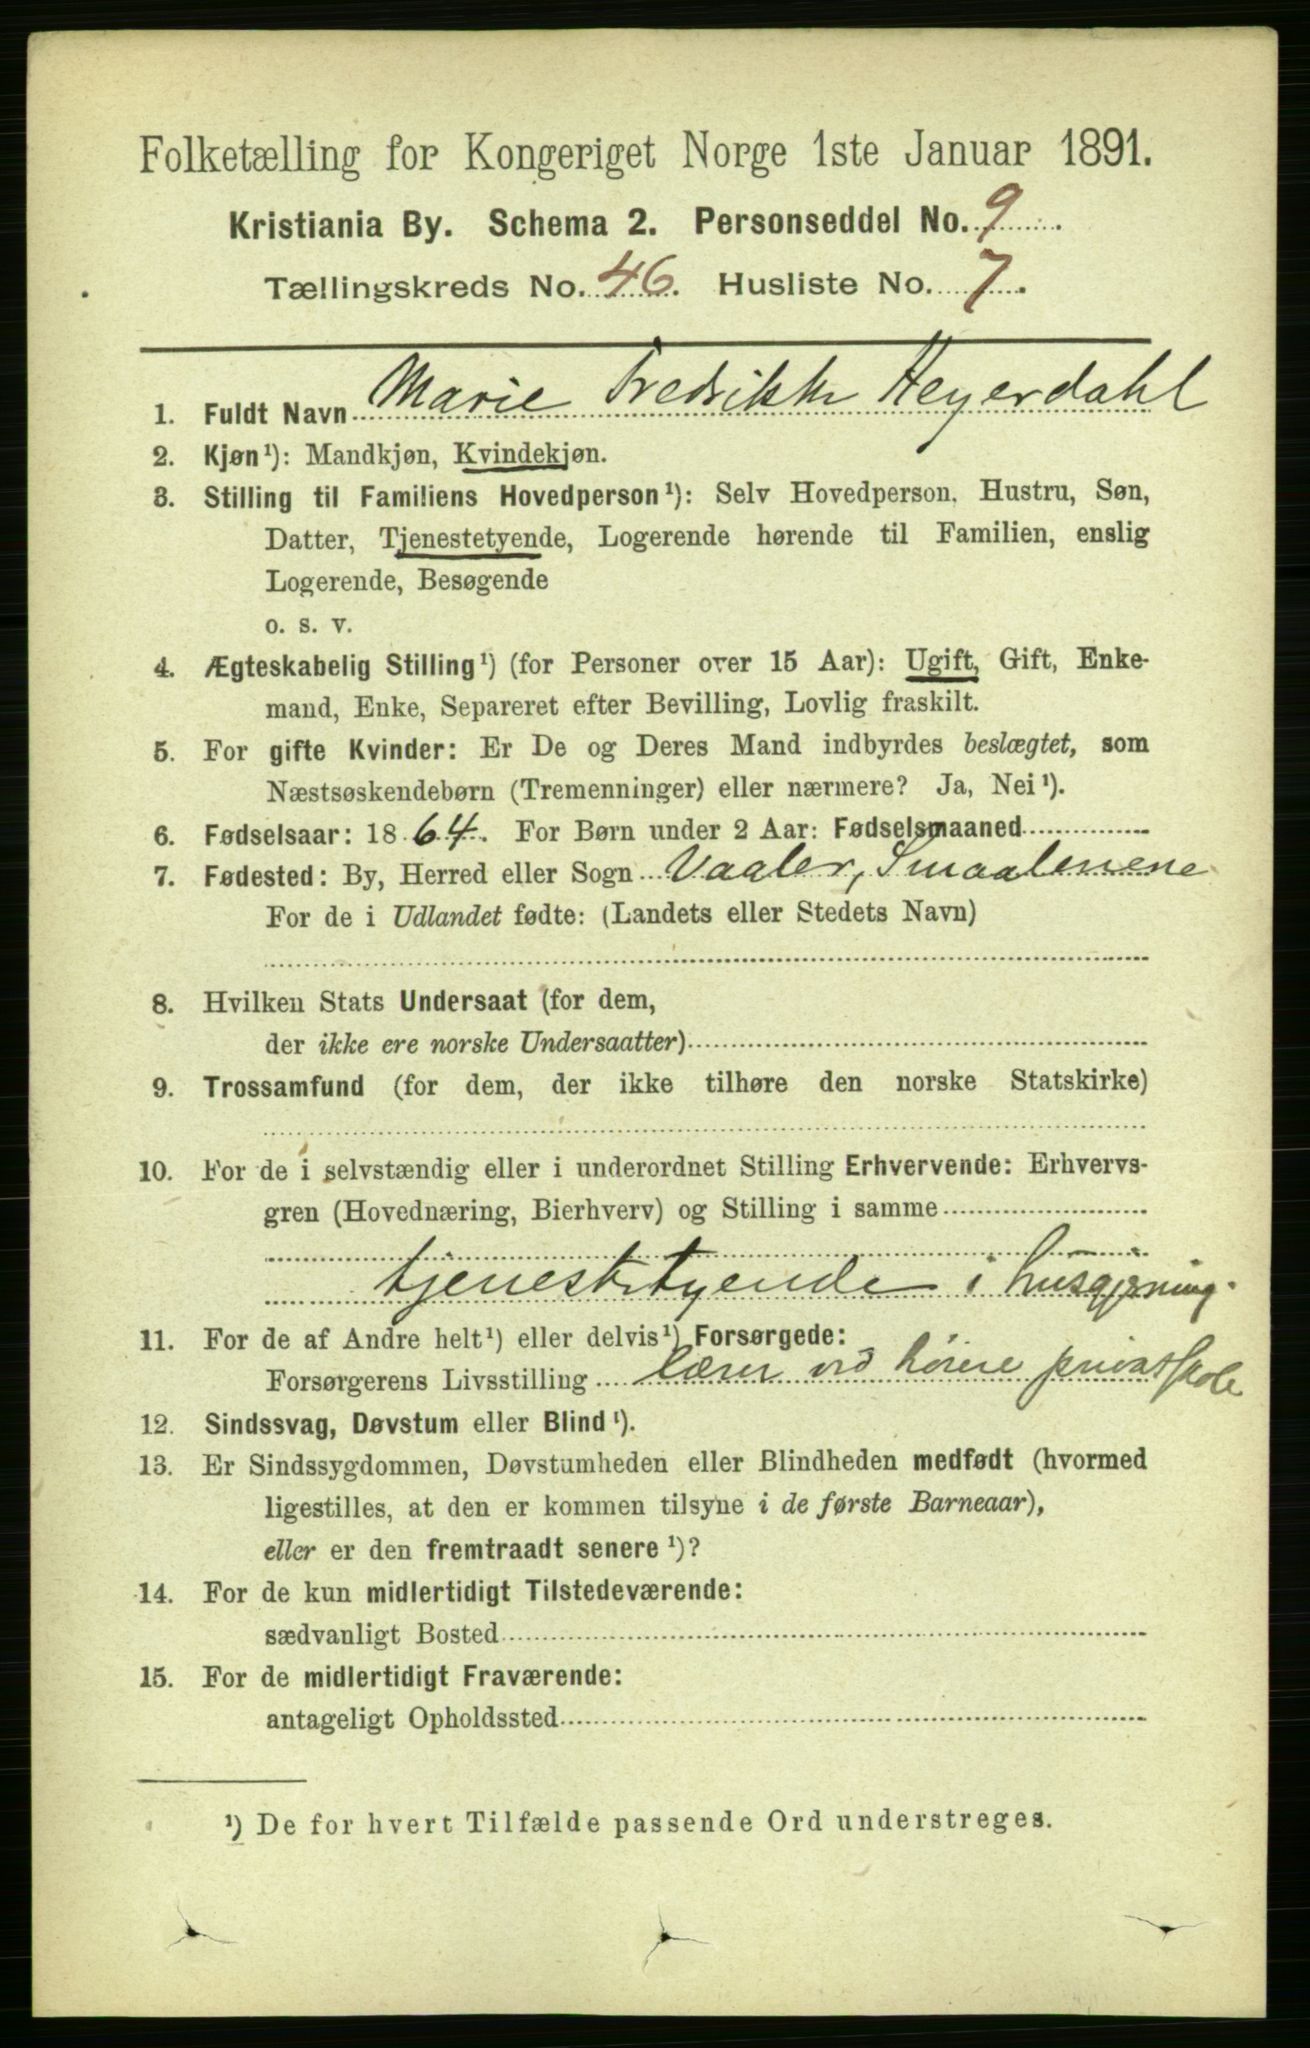 Folketælling for Kongeriget Norge 1ste Januar 1891.
Kristiania By. Schema 2. Personseddel No. 9.
Tællingskreds No. 46. Husliste No. 7.
1. Fuldt Navn Marie Fredrikke Heyerdahl
2. Kjøn¹): Mandkjøn, Kvindekjøn.
3. Stilling til Familiens Hovedperson¹): Selv Hovedperson, Hustru, Søn,
Datter, Tjenestetyende, Logerende hørende til Familien, enslig
Logerende, Besøgende
o. s. v.
4. Ægteskabelig Stilling¹) (for Personer over 15 Aar): Ugift, Gift, Enke-
mand, Enke, Separeret efter Bevilling, Lovlig fraskilt.
5. For gifte Kvinder: Er De og Deres Mand indbyrdes beslægtet, som
Næstsøskendebørn (Tremenninger) eller nærmere? Ja, Nei¹).
6. Fødselsaar: 1864. For Børn under 2 Aar: Fødselsmaaned
7. Fødested: By, Herred eller Sogn Vaaler, Smaalenene
For de i Udlandet fødte: (Landets eller Stedets Navn)
8. Hvilken Stats Undersaat (for dem,
der ikke ere norske Undersaatter)
9. Trossamfund (for dem, der ikke tilhøre den norske Statskirke)
10. For de i selvstændig eller i underordnet Stilling Erhvervende: Erhvervs-
gren (Hovednæring, Bierhverv) og Stilling i samme
tjenestetyende i husgjerning.
11. For de af Andre helt¹) eller delvis¹) Forsørgede:
Forsørgerens Livsstilling lærer ved høiere privatskole
12. Sindssvag, Døvstum eller Blind¹).
13. Er Sindssygdommen, Døvstumheden eller Blindheden medfødt (hvormed
ligestilles, at den er kommen tilsyne i de første Barneaar),
eller er den fremtraadt senere¹)?
14. For de kun midlertidigt Tilstedeværende:
sædvanligt Bosted
15. For de midlertidigt Fraværende:
antageligt Opholdssted
¹) De for hvert Tilfælde passende Ord understreges.